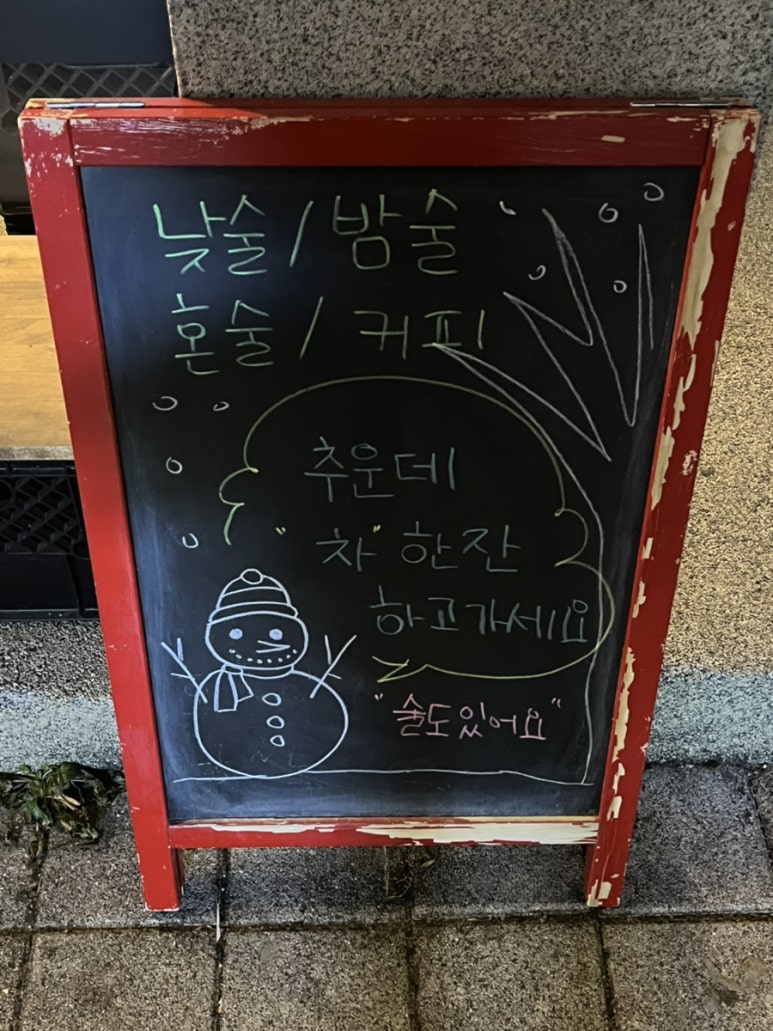 낮술 / 밤술
혼술 / 커피
추운데
"차" 한잔
하고가세요
"술도있어요"